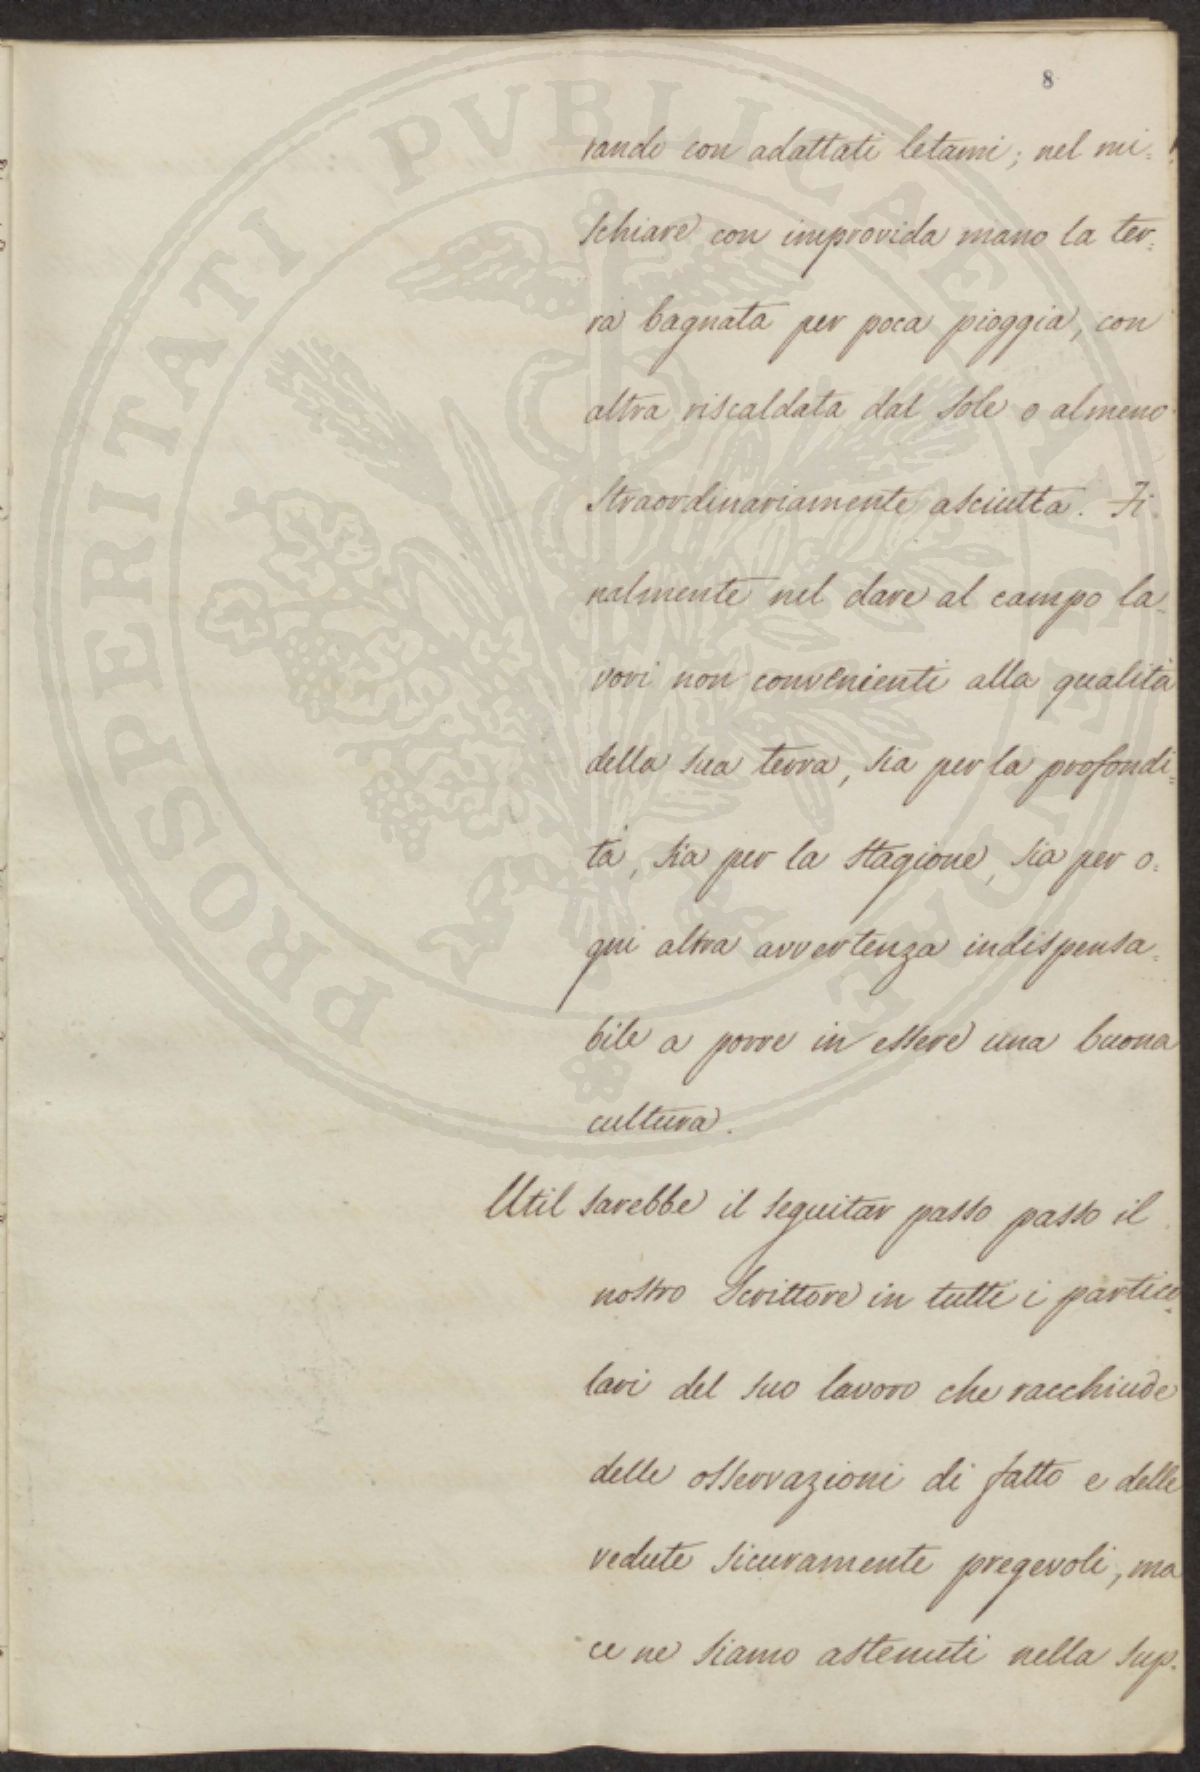 8
rando con adattati letami; nel mi=
schiare con improvida mano la ter=
ra bagnata per poca pioggia, con
altra riscaldata dal Sole o almeno
straordinariamente asciutta. Fi=
nalmente nel dare al campo la=
vori non convenienti alla qualità
della sua terra, sia per la profondi=
tà, sia per la stagione, sia per o=
gni altra avvertenza indispensa=
bile a porre in essere una buona
cultura.
Util sarebbe il seguitar passo passo il
nostro Scrittore in tutti i partico=
lari del suo lavoro che racchiude
delle osservazioni di fatto e delle
vedute sicuramente pregevoli, ma
ce ne siamo astenuti nella sup=
PROSPERITATI PVBLICAE AVGENDAE